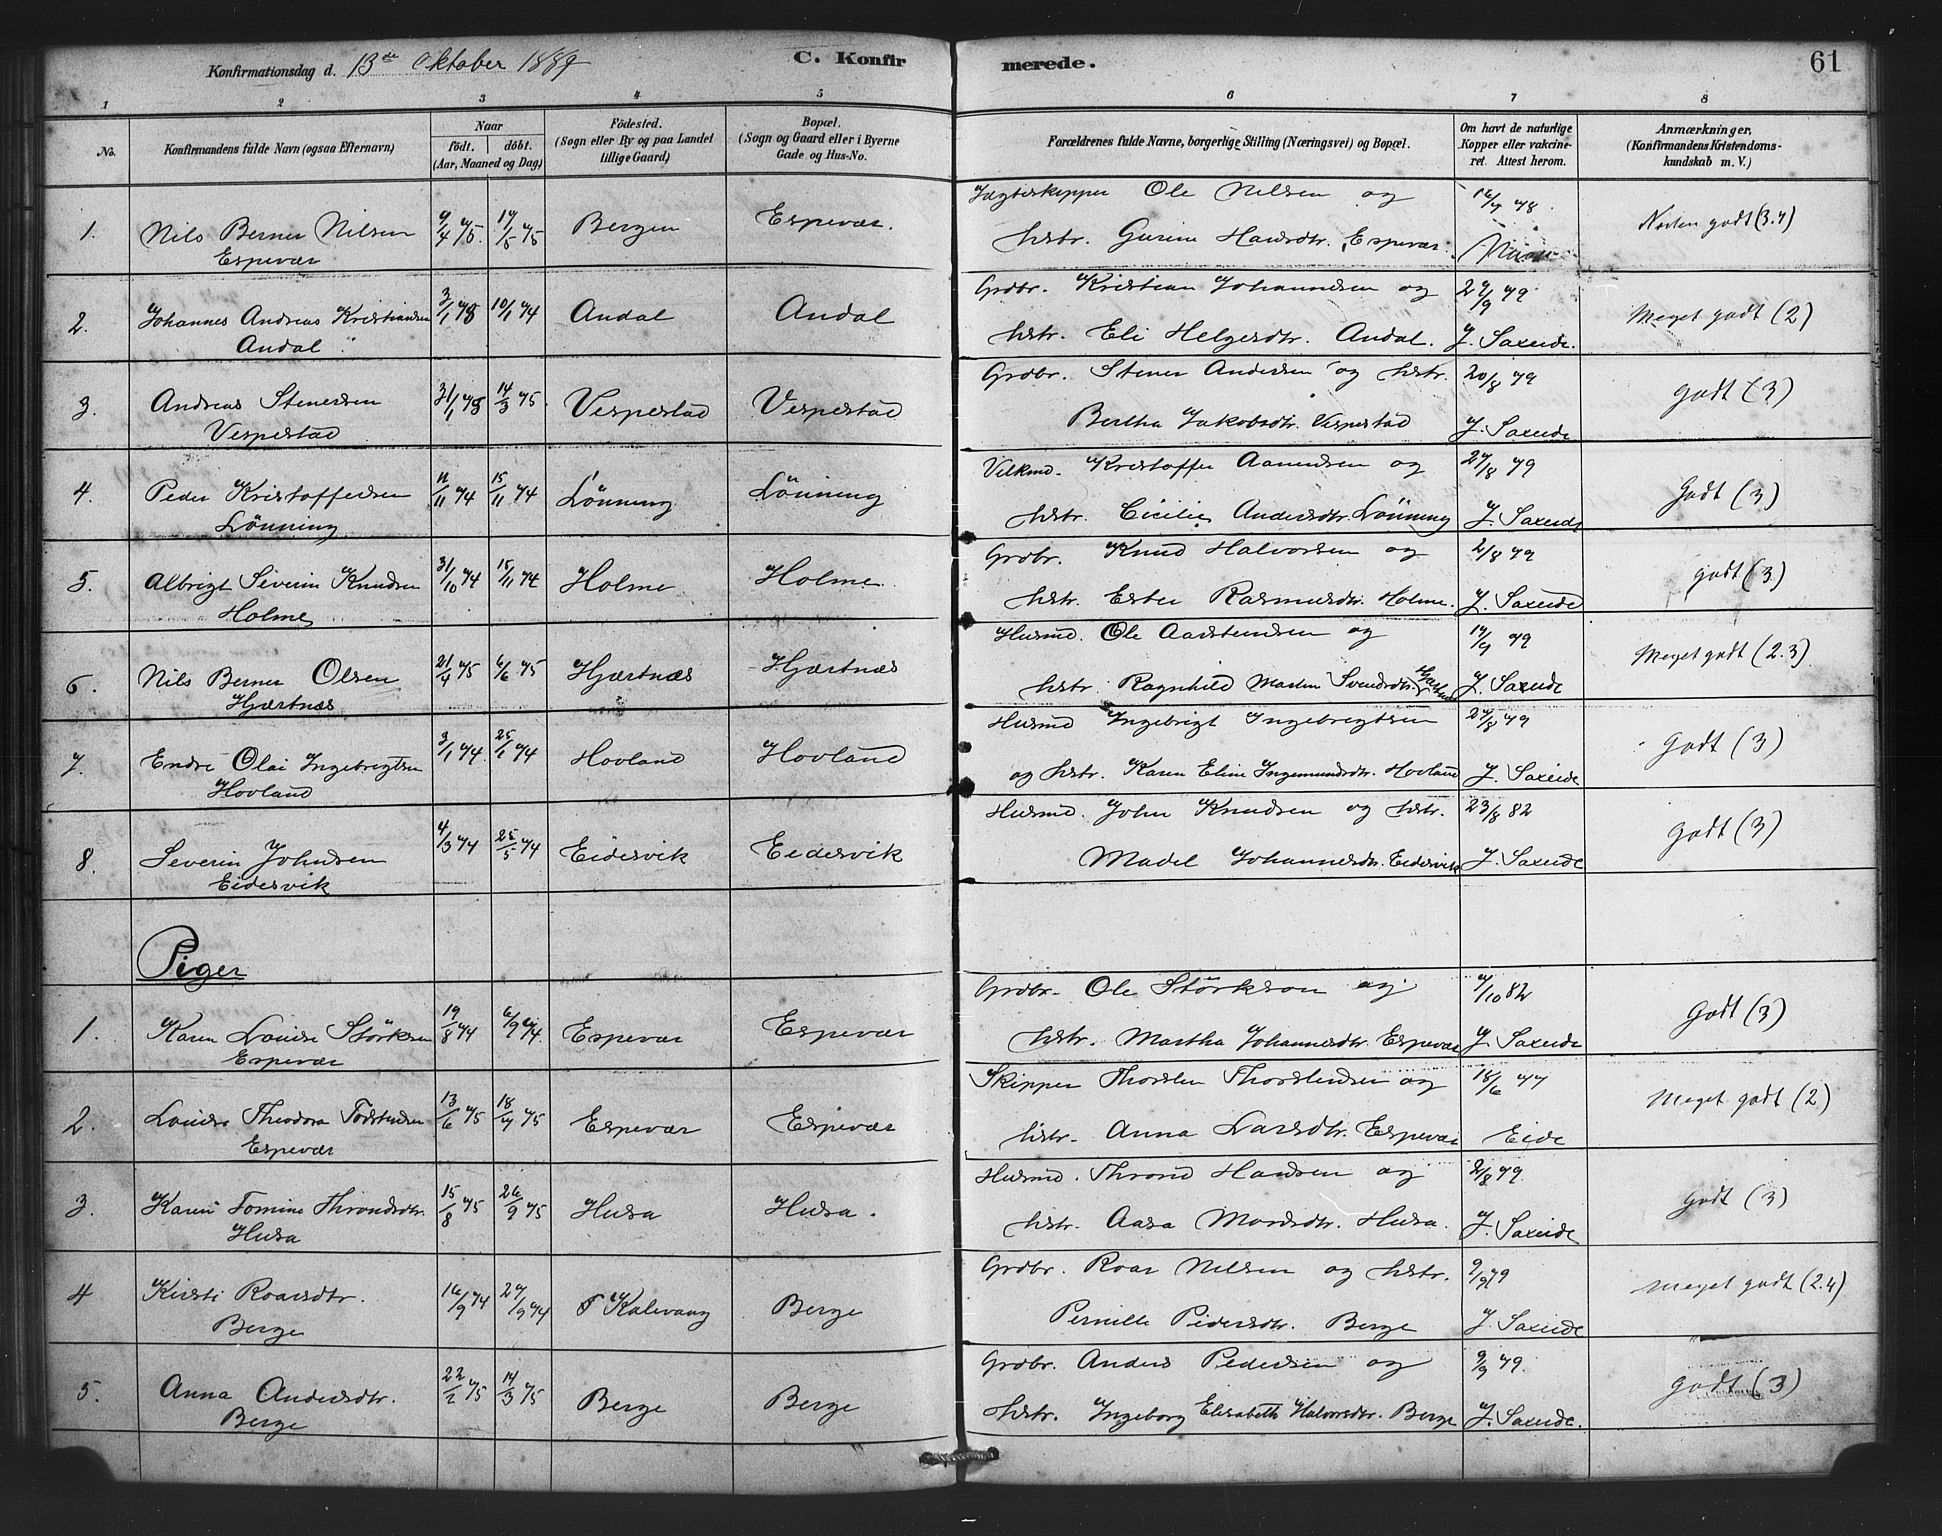 Konfirmationsdag d. 13de Oktober 1889
C. Konfirmerede.
61
1 2 3 4 5 6 7 8
No.
Konfirmandens fulde Navn (ogsaa Efternavn)
Naar
födt. döbt.
(Aar, Maaned og Dag)
Födested.
(Sogn eller By og paa Landet
tillige Gaard)
Bopæl.
(Sogn og Gaard eller i Byerne
Gade og Hus-No.
Forældrenes fulde Navne, borgerlige Stilling (Næringsvei) og Bopæl.
Om havt de naturlige
Kopper eller vakcine-
ret. Attest herom.
Anmærkninger,
(Konfirmandens Kristendoms-
kundskab m. V.)
1. Nils Berner Nilsen 9/4 75. 19/5 75 Bergen Espevær. Jægteskipper Ole Nilsen og 16/7 78.
Espevær hstr. Gurine Hansdtr. Espevær. Næsten godt (3.4)
2. Johannes Andreas Kristiansen 3/1 75 10/1 74 Andal Andal Grdbr. Kristian Johannesen og 27/9 79
Andal hstr. Eli Helgesdtr. Andal. J. Saxeide. Meget godt (2)
3. Andreas Stenersen 31/1 75 14/3 75 Vespestad Vespestad Grdbr. Stener Andersen og hstr. 20/8 79
Vespestad Bertha Jakobsdtr. Vespestad J. Saxeide godt (3)
4. Peder Kristoffersen 11/11 74 15/11 74 Lönning Lönning Vilkmd. Kristoffer Aamundsen og 27/8 79
Lönning hstr. Cicilie Andersdtr. Lönning J. Saxeide Godt (3)
5. Albrigt Severin Knudsen 31/10 74 15/11 74 Holme Holme. Grdbr. Knud Halvorsen og 2/8 79
Holme hstr. Ester Rasmusdtr. Holme. J. Saxeide godt (3)
6. Nils Berner Olsen 21/4 75 6/6 75 Hjærtnæs Hjærtnæs Husmd. Ole Aadstensen og 19/9 79
Hjærtnæs hstr. Ragnhild Martin Svendsdtr. Hjærtnæs J. Saxeide Meget godt (2.3)
7. Endre Olai Ingebrigtsen 3/1 74. 25/1 74 Hovland Hovland Husmd Ingebrigt Ingebrigtsen 27/8 79
Hovland og hstr. Karen Eline Ingemundsdtr. Hovland J. Saxeide Godt (3)
8. Severin Johnsen 4/3 74 25/5 74 Eidesvik Eidesvik Husmd John Knudsen og hstr. 23/8 82
Eidesvik Madel Johannesdtr. Eidesvik J. Saxeide godt (3)
Piger
1. Karen Lovise Störksen 19/8 74 6/9 74. Espevær Espevær Grdbr. Ole Störkson og 7/10 82
Espevær hstr. Martha Johannesdtr. Espevær J. Saxeide Godt (3)
2. Lovise Theodora Torstensen 13/6 75 18/7 75 Espevær Espevær Skipper Thorsten Thorstensen og 18/6 77
Espevær hstr. Anna Larsdtr. Espevær Eide Meget godt (2)
3. Karen Tomine Throndsdtr. 15/8 75 26/9 75 Husa Husa. Husmd. Thrond Hansen og 2/8 79.
Husa hstr. Aasa Monsdtr. Husa. J. Saxeide godt (3)
4 Kirsti Roarsdtr. 16/9 74 27/9 74 Kalevaag Berge Grdbr. Roar Nilsen og hstr. 9/9 79
Berge Pernille Pedersdtr. Berge J. Saxeide meget godt (2.4)
5. Anna Andersdtr. 22/2 75 14/3 75 Berge Berge Grdbr. Anders Pedersen og 9/9 79.
Berge hstr. Ingeborg Elisabeth Halvorsdtr. Berge J. Saxeide. godt (3)